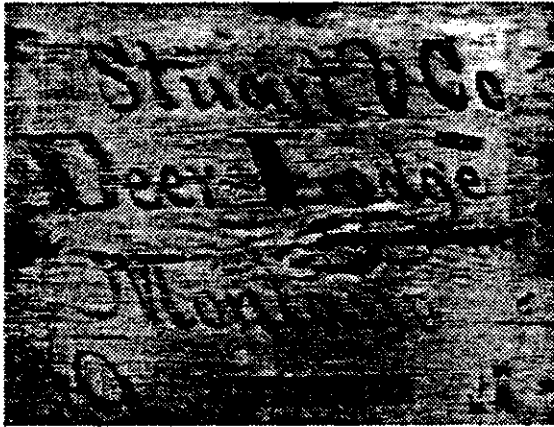 Stuart & Co
Deer Lodge
Montana